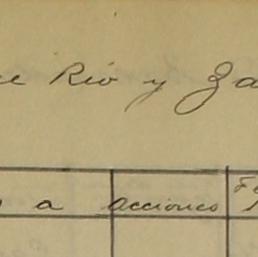 Rio y Za
a acciones